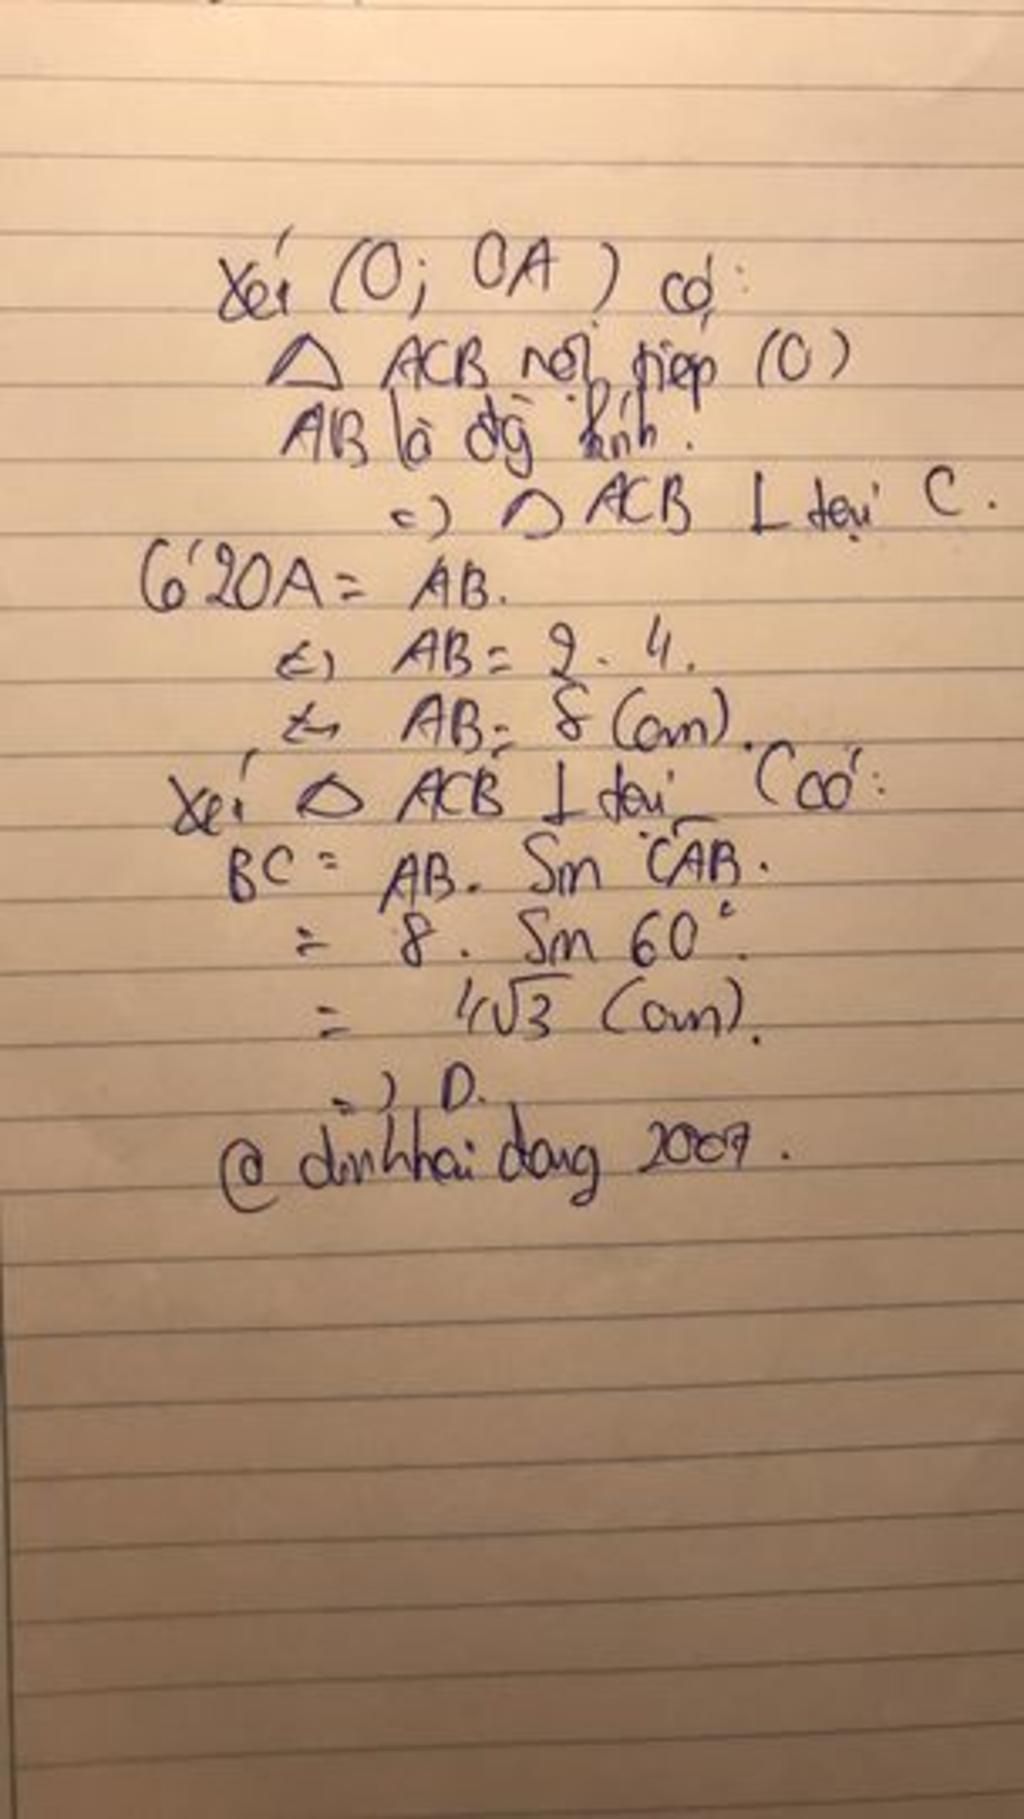 Xét (O; OA) có:
△ ACB nội tiếp (O)
AB là đg kính.
=> △ ACB ⊥ tại C.
Có 2OA = AB.
<=> AB = 2. 4.
<=> AB = 8 (cm).
Xét △ ACB ⊥ tại C có:
BC = AB. Sin CAB.
= 8. Sin 60°.
= 4√3 (cm).
=> D.
@ dinhhaidang 2007.